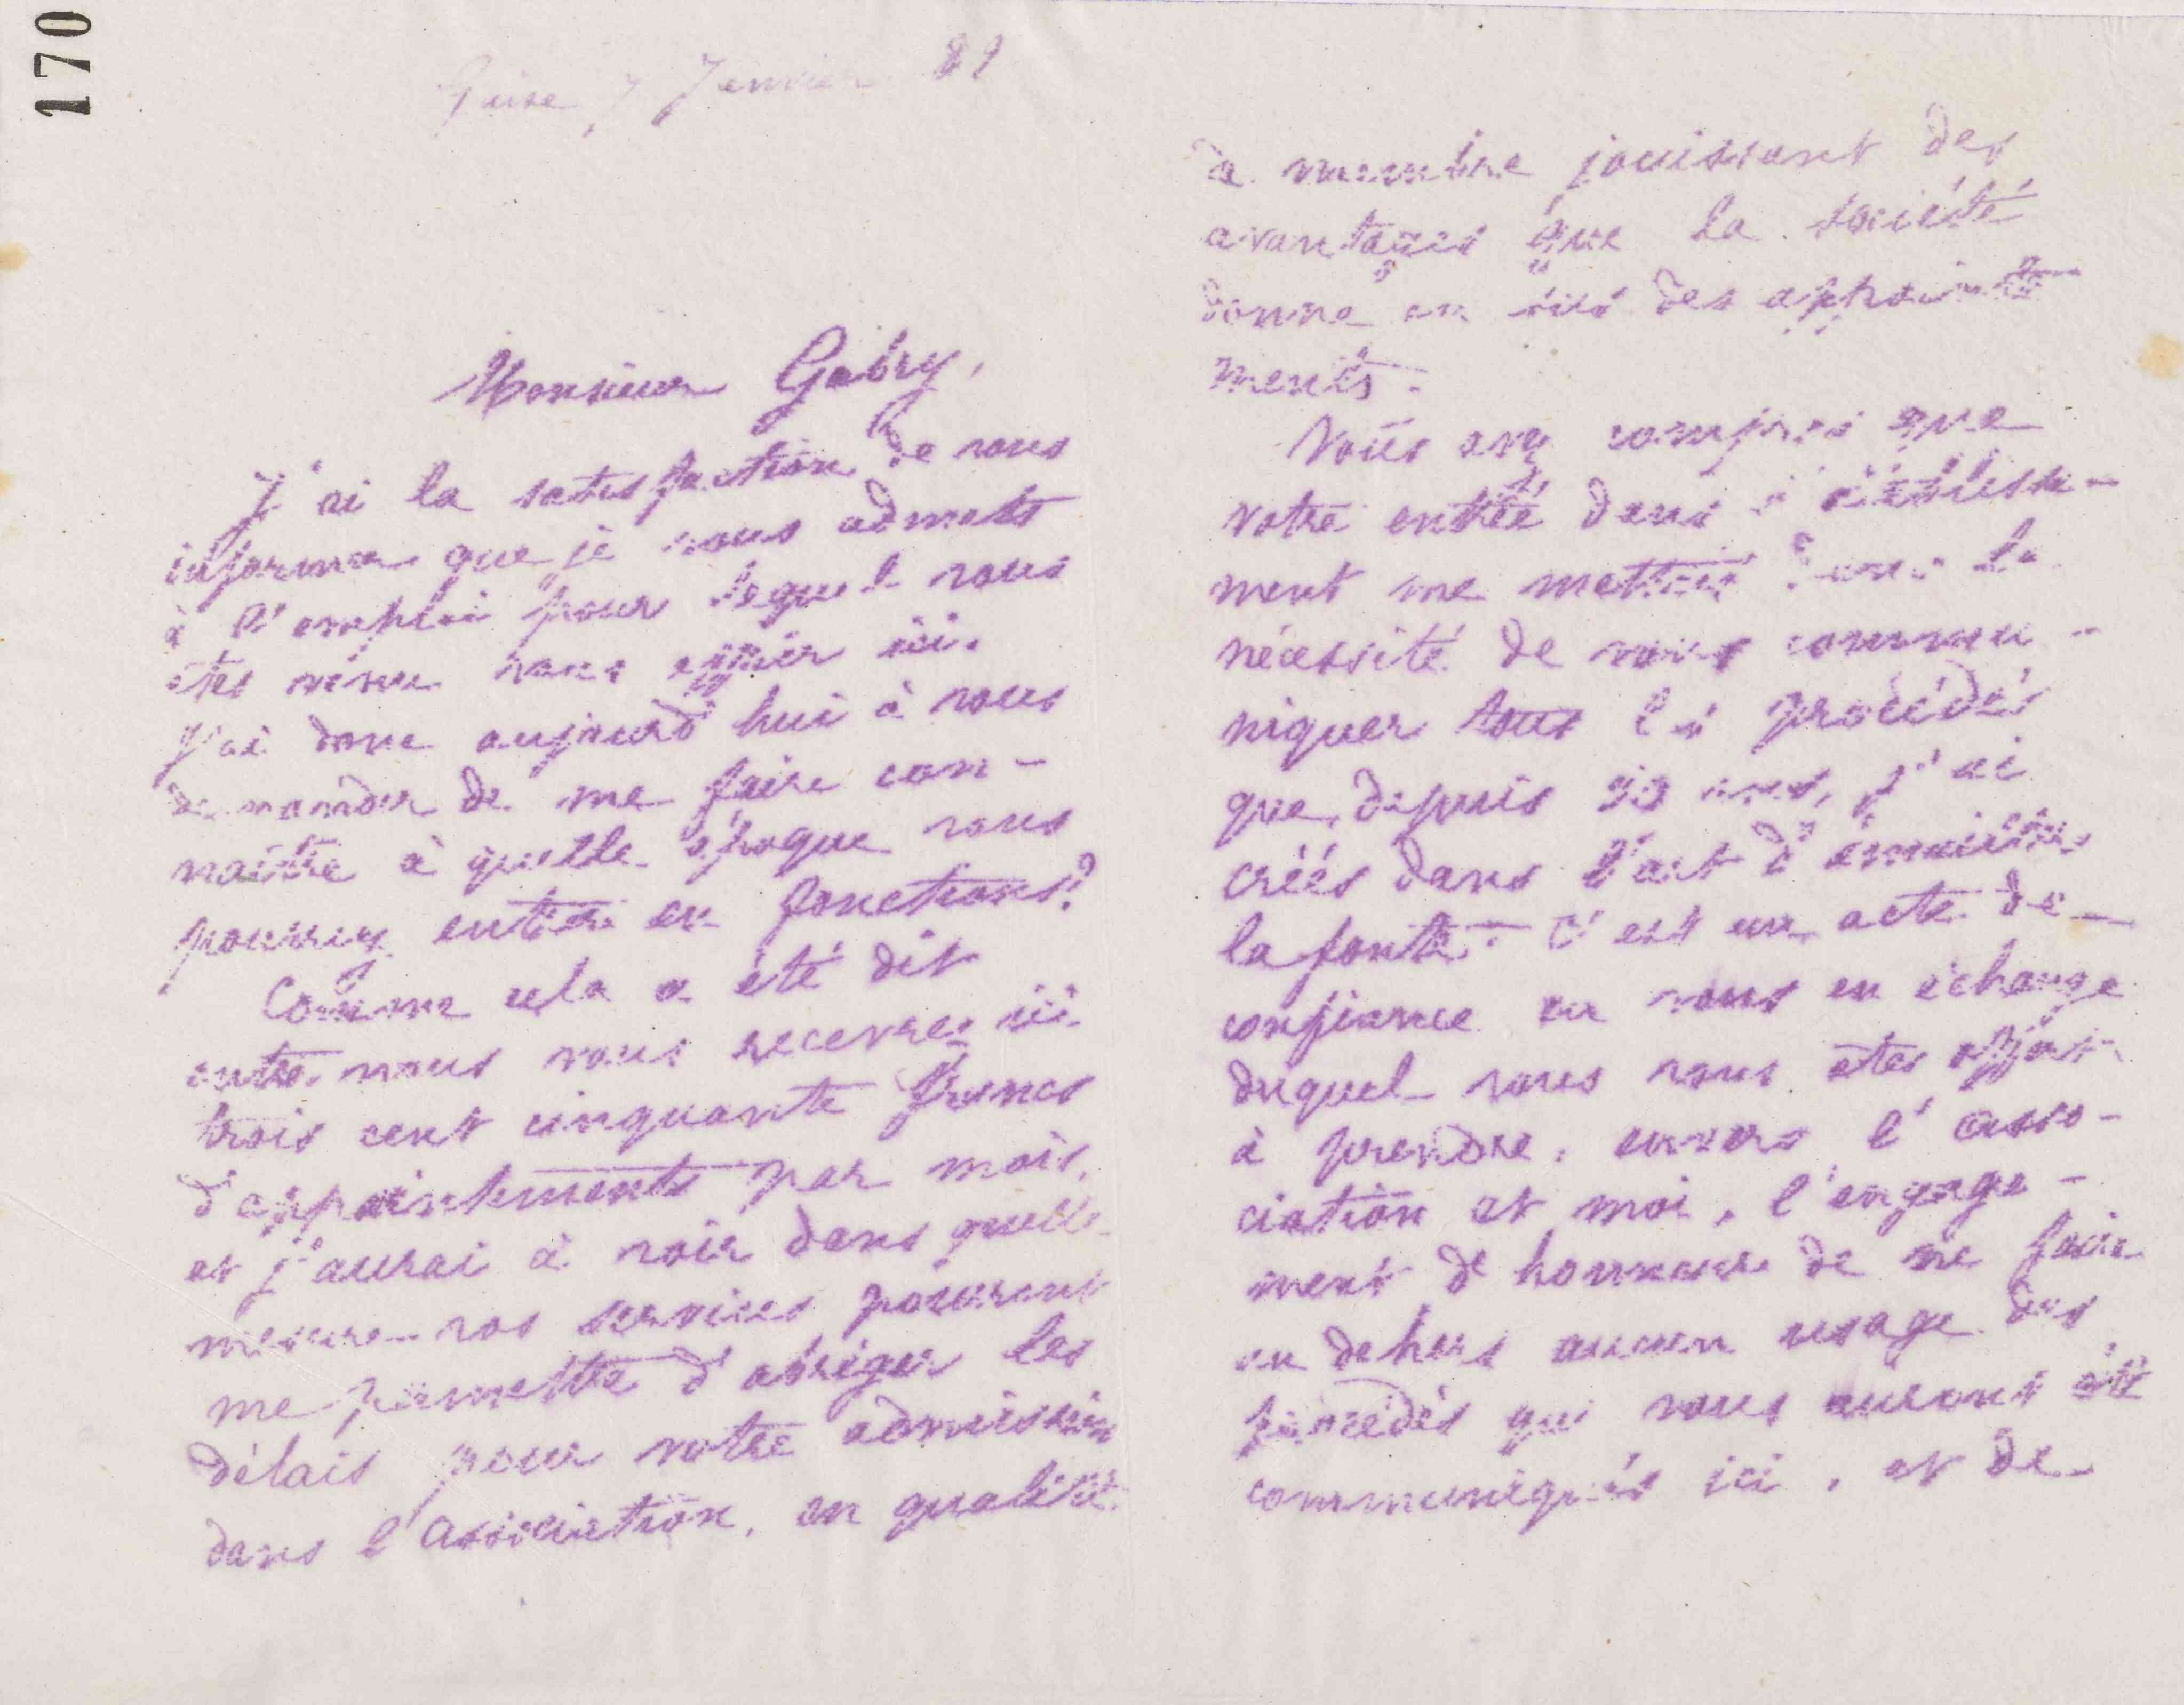 170
Guise, 7 Janvier 89
Monsieur Gabry,
J'ai la satisfaction de vous
informer que je vous admets
à l'emploi pour lequel vous
êtes venu vous offrir ici.
J'ai donc aujourd'hui à vous
demander de me faire con-
naître à quelle époque vous
pourriez entrer en fonctions?
Comme cela a été dit
entre nous vous recevrez ici
trois cent cinquante francs
d'appointements par mois,
et j'aurai à voir dans quelle
mesure vos services pourront
me permettre d'abréger les
délais pour votre admission
dans l'association, en qualité
de membre jouissant des
avantages que la société
donne en sus des appointe-
ments.
Vous avez compris que
votre entrée dans l'établisse-
ment me mettrait dans la
nécessité de vous commu-
niquer tous les procédés
que, depuis ans, j'ai
créés dans l'art d'émailler
la fonte. C'est un acte de
confiance en vous en échange
duquel vous vous êtes offert
à prendre, envers l'asso-
ciation et moi, l'engage-
ment d'honneur de ne faire
au dehors aucun usage des
procédés qui vous auront été
communiqués ici, et de